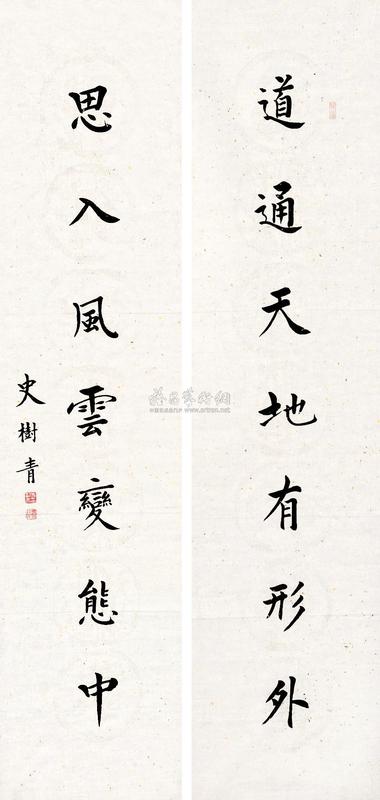 道通天地有形外
思入風雲變態中
史樹青
www.artron.net